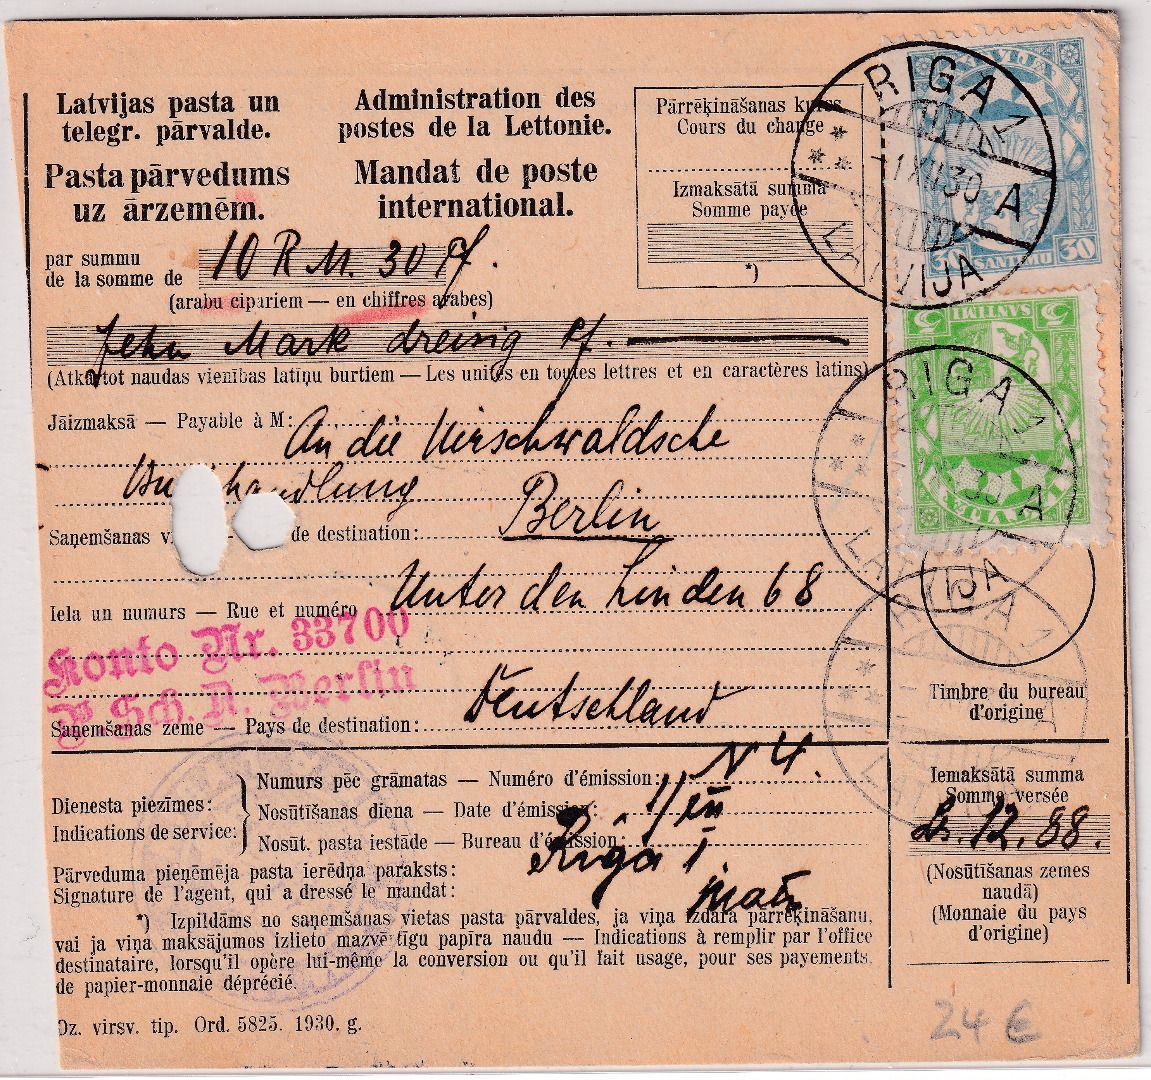 Latvijas pasta un
telegr. pārvalde.
Administration des
postes de la Lettonie.
Pasta pārvedums
uz ārzemēm.
Mandat de poste
international.
Pārrēķināšanas kurss
Cours du change
Izmaksātā summa
Somme payée
*)
par summu
de la somme de
10 R M. 30 Pf.
(arabu cipariem — en chiffres arabes)
Zehn Mark dreisig Pf.
(Atkārtot naudas vienības latīņu burtiem — Les unités en toutes lettres et en caractères latins)
Jāizmaksā — Payable à M:
An die Hirschwaldsche
handlung
Saņemšanas v
de destination:
Berlin
Iela un numurs — Rue et numéro
Unter den Linden 68
Konto Nr. 33700
P. Sch. A. Berlin
Saņemšanas zeme — Pays de destination:
Deutschland
Dienesta piezīmes:
Indications de service:
Numurs pēc grāmatas — Numéro d'émission:
N 4.
Nosūtīšanas diena — Date d'émission:
1/XII
Nosūt. pasta iestāde — Bureau d'émission:
Riga 1.
Pārveduma pieņēmēja pasta ierēdņa paraksts:
Signature de l'agent, qui a dressé le mandat:
*) Izpildāms no saņemšanas vietas pasta pārvaldes, ja viņa izdara pārrēķināšanu,
vai ja viņa maksājumos izlieto mazvērtīgu papīra naudu — Indications à remplir par l'office
destinataire, lorsqu'il opère lui-même la conversion ou qu'il fait usage, pour ses payements,
de papier-monnaie déprécié.
Oz. virsv. tip. Ord. 5825. 1930. g.
RIGA 1
-1 XII 30 A
LATVIJA
LATVIJA
30 SANTIMU 30
5 SANTIMI 5
LATVIJA
RIGA 1
A
LATVIJA
IJA
RIGA 1
Timbre du bureau
d'origine
Iemaksātā summa
Somme versée
Ls. 12.88.
(Nosūtīšanas zemes
naudā)
(Monnaie du pays
d'origine)
24 €